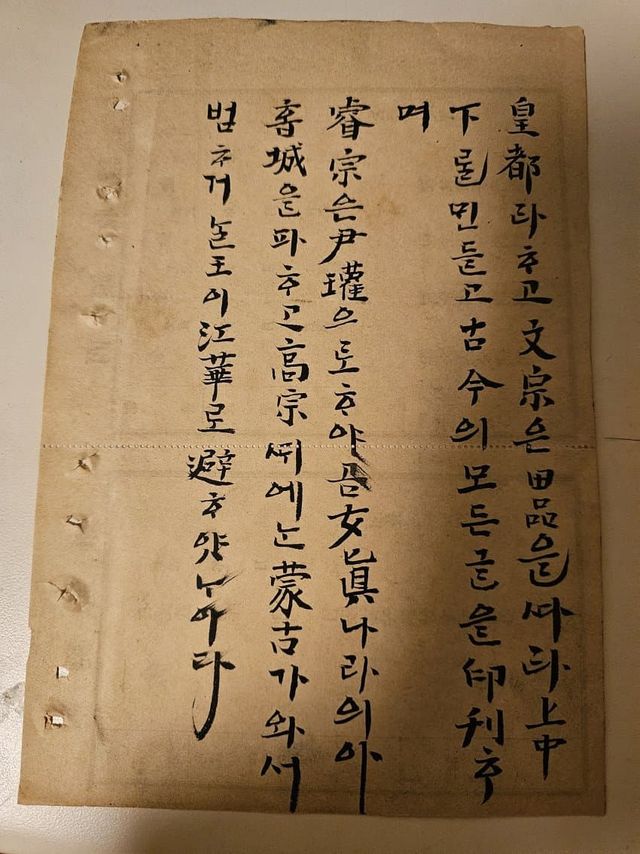 皇都라ᄒᆞ고文宗은田品을ᄯᅡ라上中
下를민들고古今의모든글을印刊ᄒᆞ
며
睿宗은尹瓘으로ᄒᆞ야금女眞나라의아
홉城을파ᄒᆞ고高宗ᄯᅢ에ᄂᆞᆫ蒙古가와서
범ᄒᆞ거ᄂᆞᆯ王이江華로避ᄒᆞ얏ᄂᆞ이다